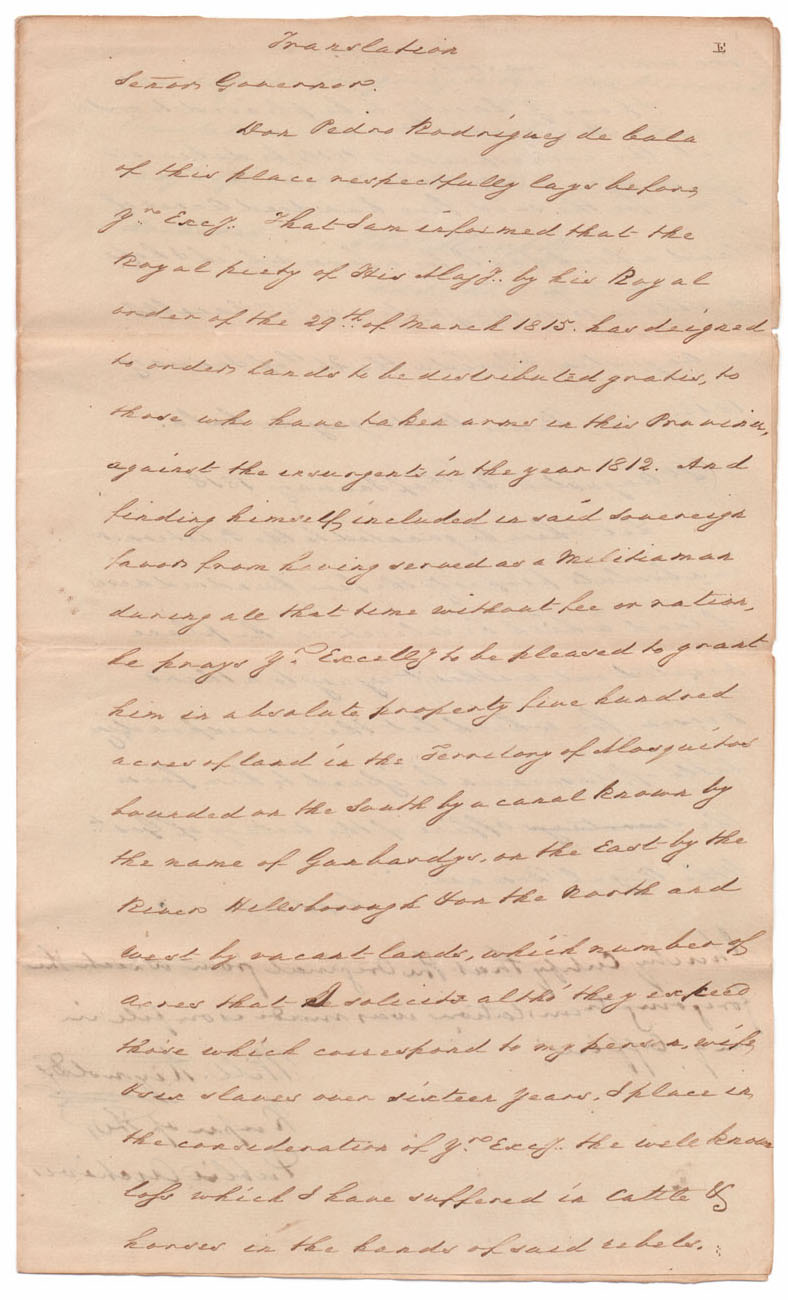 Translation
E
Señor Governor.
Don Pedro Rodriguez de Cala
of this place respectfully lays before
Yr. Excy. That I am informed that the
Royal piety of His Majy. by his Royal
order of the 29th. of March 1815. has deigned
to order lands to be distributed gratis, to
those who have taken arms in this Province,
against the insurgents in the year 1812. And
finding himself, included in said Sovereign
favor from having served as a Militiaman
during all that time without fee or ration,
he prays Yr. Excelly to be pleased to grant
him in absolute property five hundred
acres of land in the Territory of Mosquitos
bounded on the South by a canal known by
the name of Gambardys, on the East by the
River Hillsborough & on the North and
West by vacant lands, which number of
acres that I solicit altho' they exceed
those which correspond to my person, wife,
& six slaves over sixteen years, I place in
the consideration of Yr. Excy. the well known
loss which I have suffered in Cattle &
horses in the hands of said rebels.